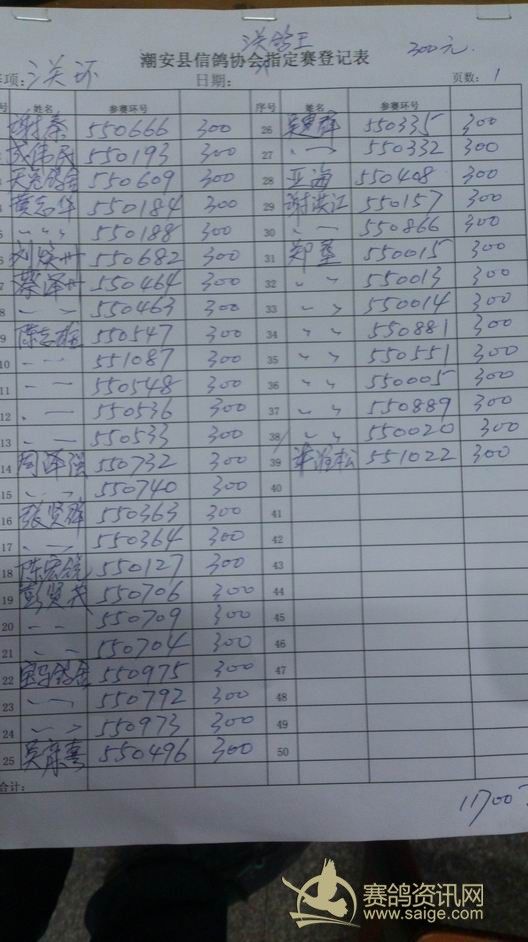 决鸽王
潮安县信鸽协会指定赛登记表 300元
项: 决环 日期: 页数: 1
号 姓名 参赛环号 序号 姓名 参赛环号
谢秦 550666 300 26 550335 300
成伟民 550193 300 27 〃 550332 300
550609 300 28 亚海 550408 300
黄志华 550184 300 29 谢洪江 550157 300
〃 550188 300 30 〃 550866 300
550682 300 31 550015 300
7 蔡泽州 550464 300 32 〃 550013 300
8 〃 550463 300 33 〃 550014 300
9 陈志雄 550547 300 34 〃 550881 300
10 〃 551087 300 35 〃 550551 300
11 〃 550548 300 36 〃 550005 300
12 〃 550536 300 37 〃 550889 300
13 〃 550533 300 38 〃 550020 300
14 周泽强 550732 300 39 551022 300
15 〃 550740 300 40
16 张贤辉 550363 300 41
17 〃 550364 300 42
18 陈宏锐 550127 300 43
19 550706 300 44
20 〃 550709 300 45
21 〃 550704 300 46
22 宝马鸽舍 550975 300 47
23 〃 550792 300 48
24 〃 550973 300 49
25 吴庆喜 550496 300 50
合计: 11700
赛鸽资讯网
www.saige.com